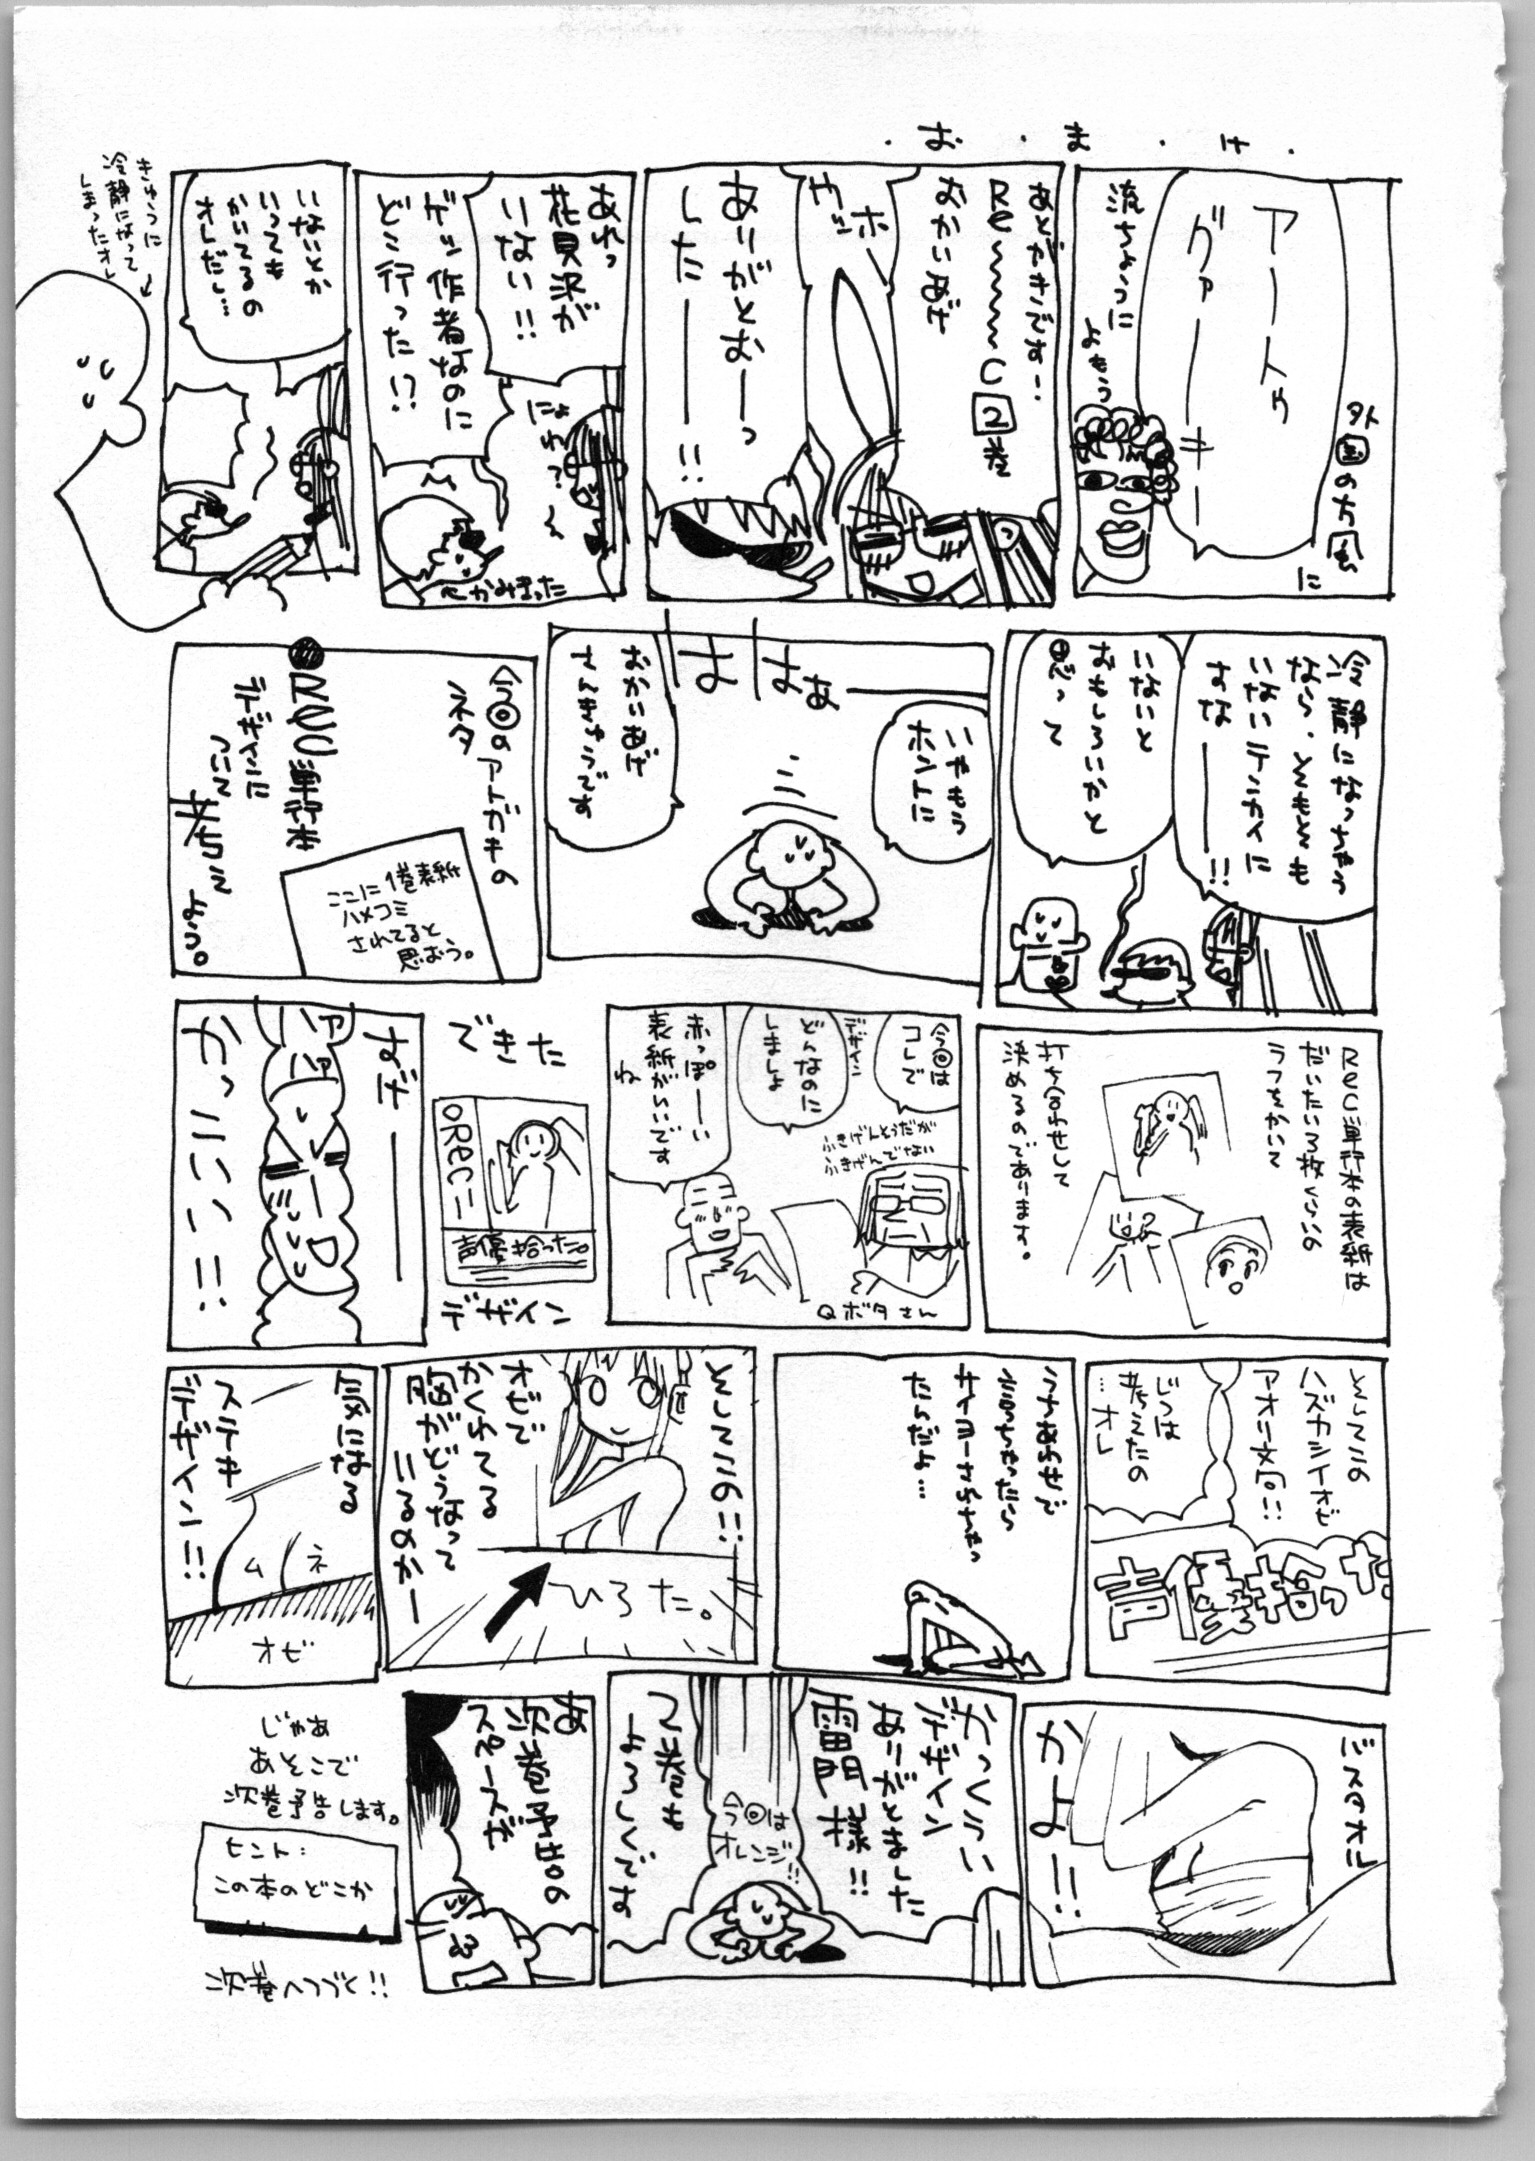 お・ま・け
外国の方風に
アートゥ
グァーーキー
流ちょうに
よもう
あとがきですー
REーーC 2巻
おかいあげ
ホンッ
やッ
ありがとおーっ
したーーー!!
あれっ
花見沢が
いない!!
ゲッ 作者なのに
どこ行った!?
にょわ?
かみまった
いないとか
いっても
かいてるの
オレだし…
きゅうに
冷静になって
しまったオレ
冷静になっちゃう
なら、そもそも
いないテンカイに
すなーーー!!
いないと
おもしろいかと
思って
いやもう
ホントに
ははぁーー
おかいあげ
さんきゅうです
今回のアトガキの
ネタ
●REC単行本
デザインに
ついて
考えよう。
ここに1巻表紙
ハメコミ
されてると
思おう。
REC単行本の表紙は
だいたい3枚くらいの
ラフをかいて
打ち合わせして
決めるのであります。
今回は
コレで
デザイン
どんなのに
しましょ
赤っぽーい
表紙がいいです
ね
ふきげんそうだが
ふきげんでない
Qボタさん
できた
○REC ー
声優拾った。
デザイン
ハァ
ハァ
すげーーー
かっこいい!!
そしてこの
ハズカシイオビ
アオリ文句!!
じつは
考えたの
…オレ
声優拾った
うちあわせで
言っちゃったら
サイヨーされちゃっ
たんだよ…
そしてこの!!
オビで
かくれてる
胸がどうなって
いるのかー
ひろた。
気になる
ステキ
デザイン!!
ムネ
オビ
バスタオル
かよー!!
かっくいい
デザイン
ありがとました
雷門様!!
今回は
オレンジ!!
2巻も
よろしくです
あ
次巻予告の
スペースが
じゃあ
あそこで
次巻予告します。
ヒント:
この本のどこか
次巻へつづく!!